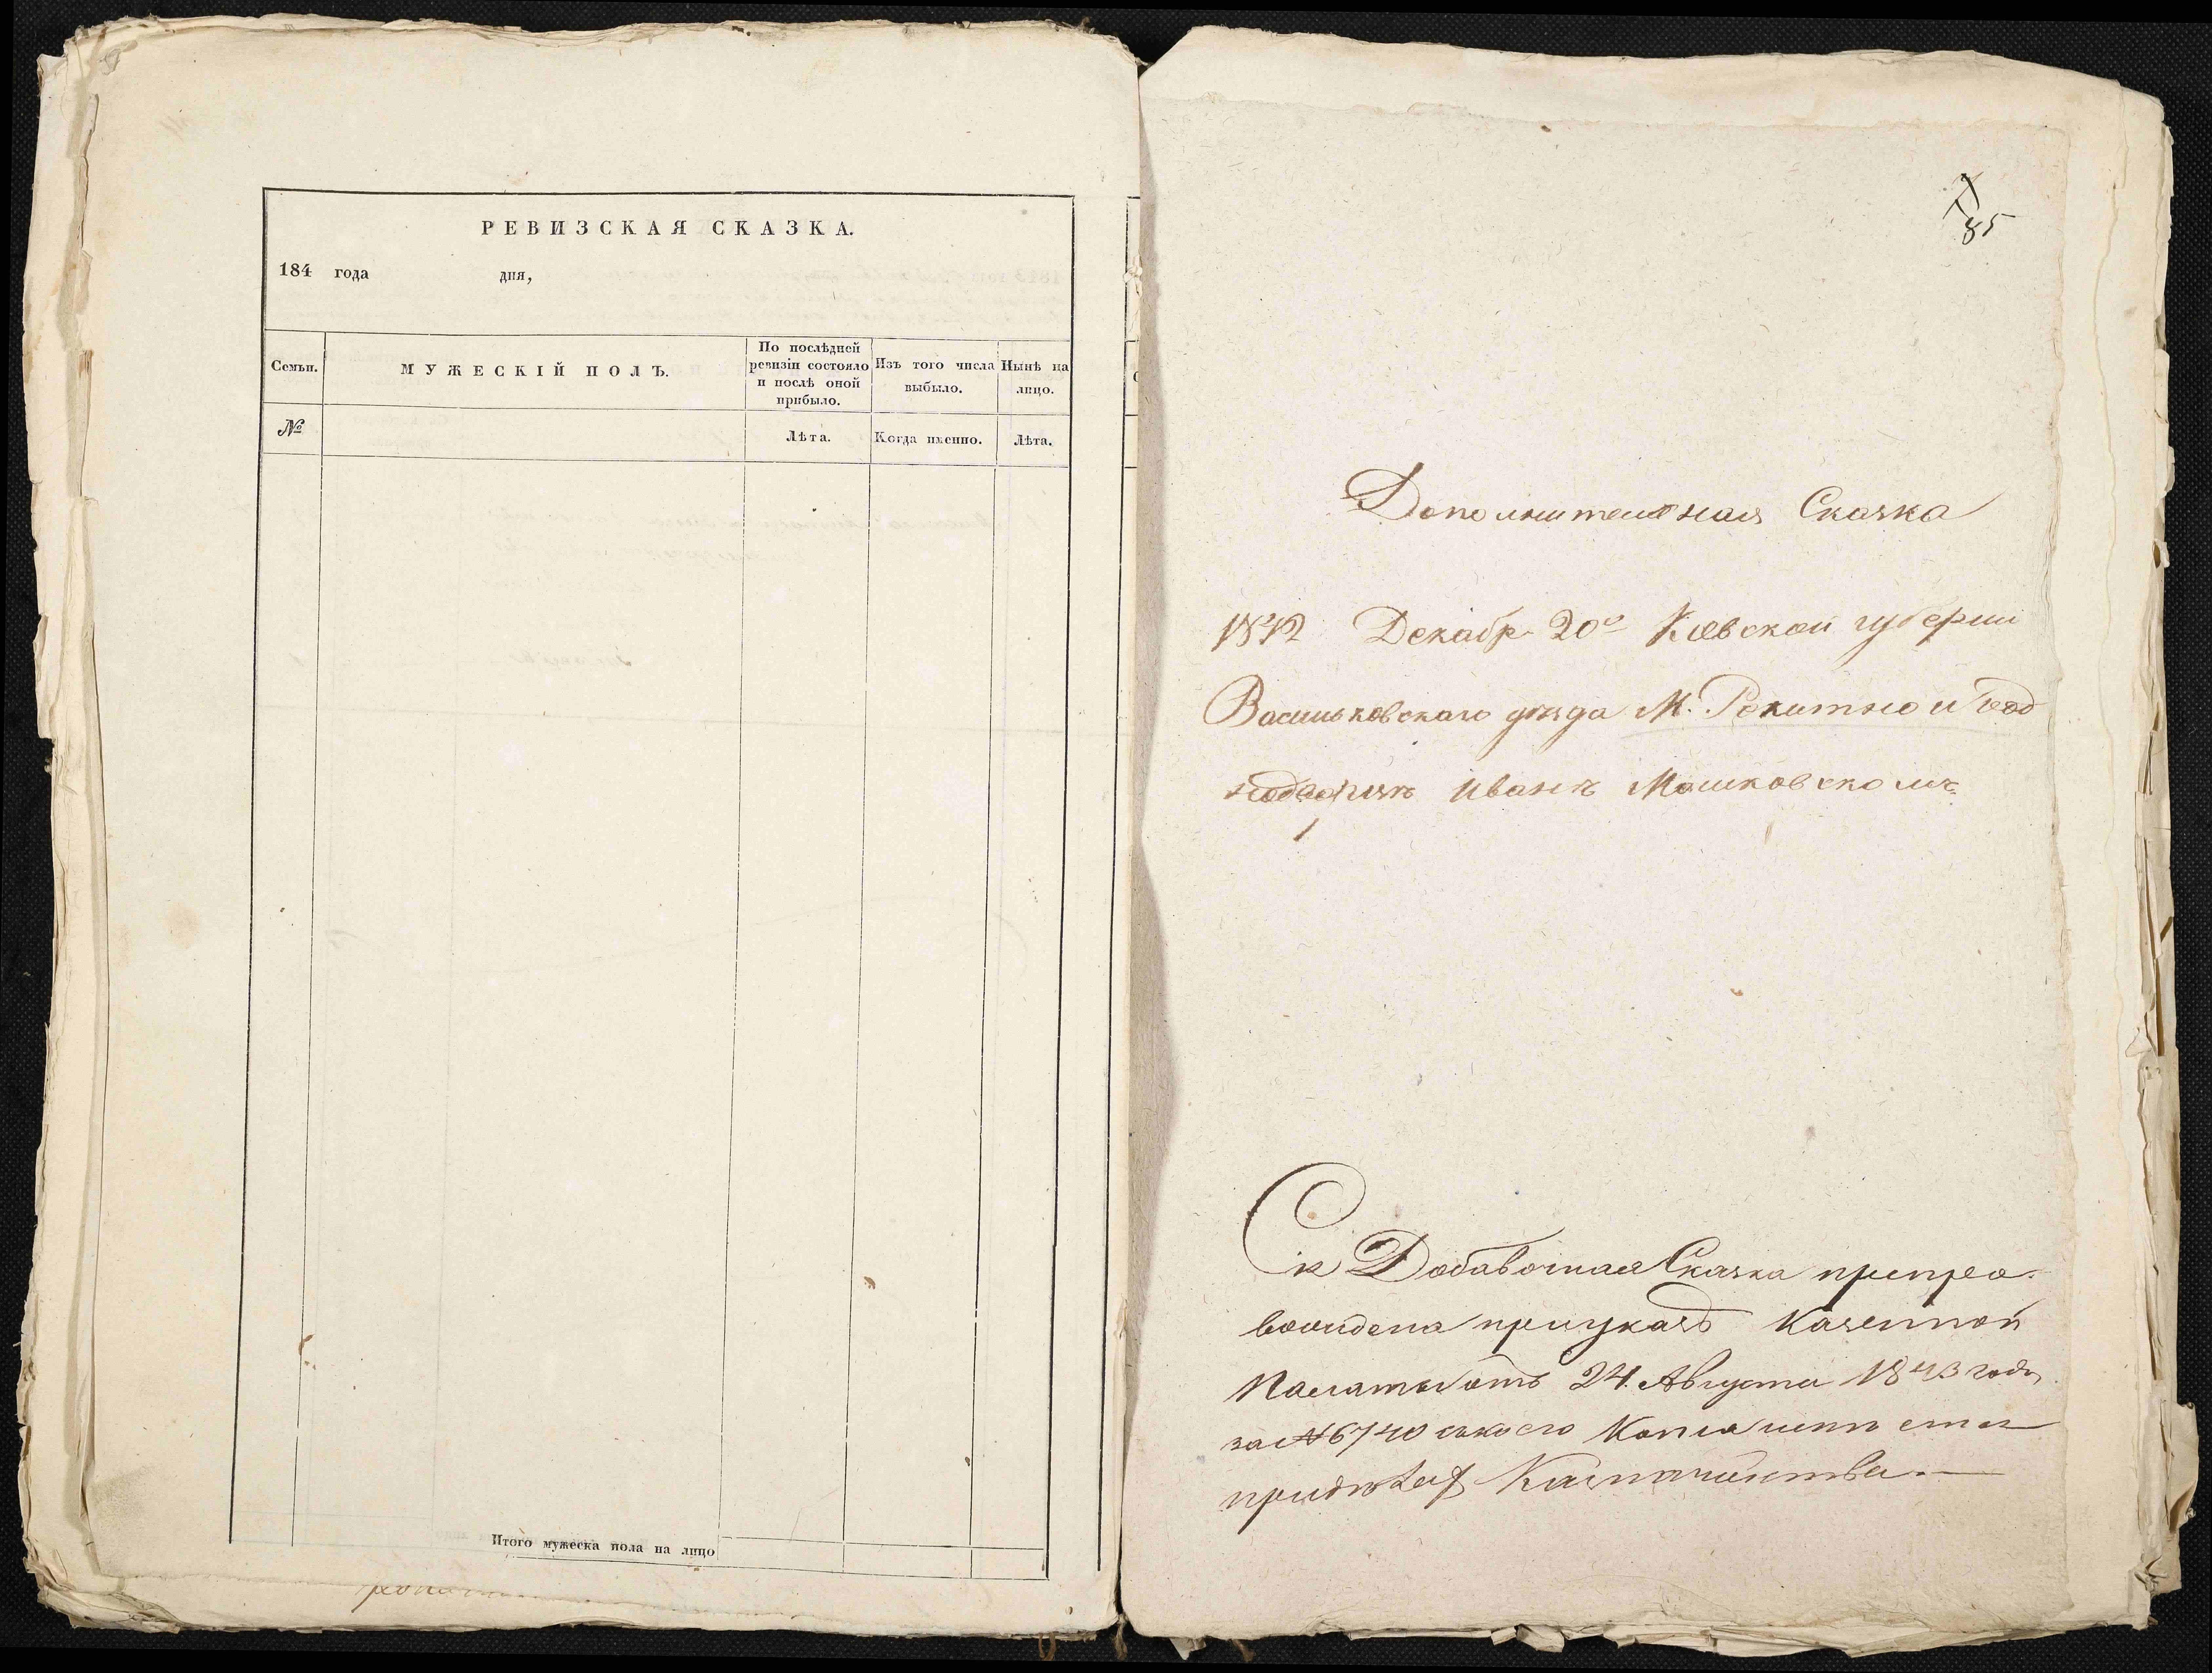 РЕВИЗСКАЯ СКАЗКА.
184 года дня,
Семьи.
МУЖЕСКІЙ ПОЛЪ.
По послѣдней ревизіи состояло и послѣ оной прибыло.
Изъ того числа выбыло.
Нынѣ на лицо.
№
Лѣта.
Когда именно.
Лѣта.
Итого мужеска пола на лицо
85
Дополнительная Сказка
1842 Декабр 20го Киевской губернии
Васильковскаго уѣзда М. Рокитно и
Иванѣ Машковскомъ
Добавочная Сказка препро-
вождена при указѣ Казенной
Палаты отъ 24. Августа 1843 года
за №6740
Казначейства.